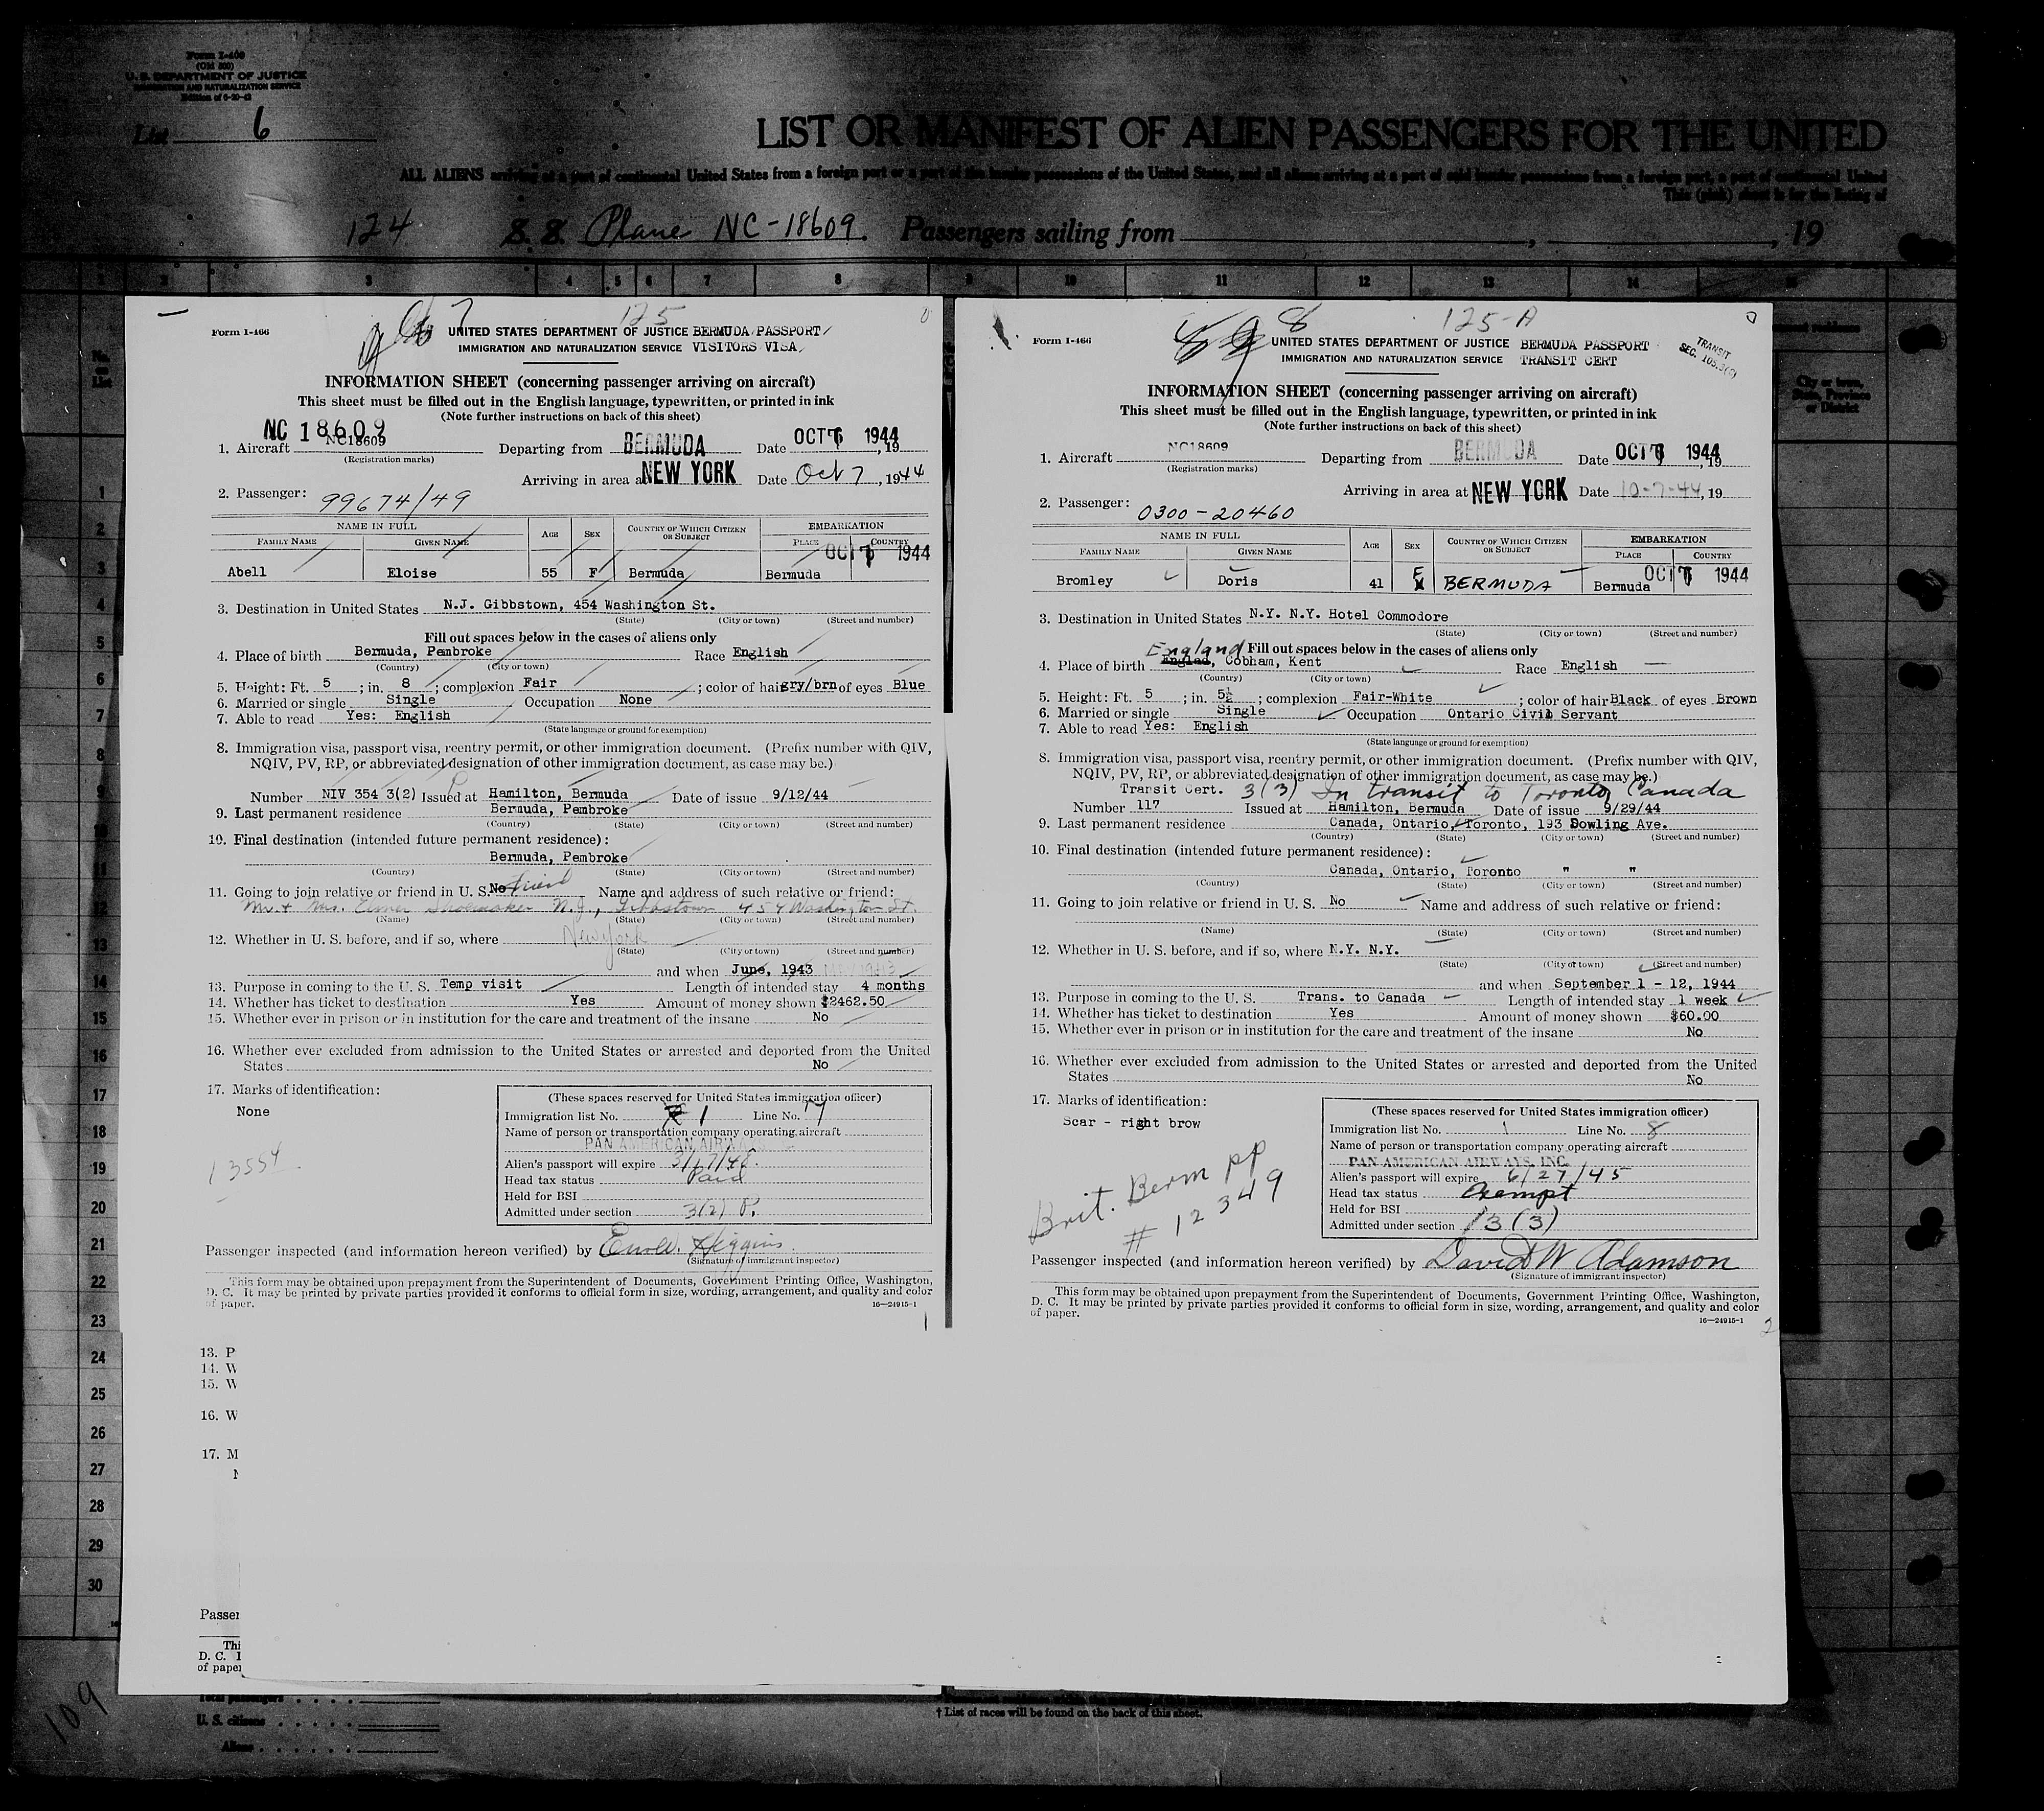 Form I-400
(Old 500)
U. S. DEPARTMENT OF JUSTICE
IMMIGRATION AND NATURALIZATION SERVICE
Edition of 6-20-42
List 6
LIST OR MANIFEST OF ALIEN PASSENGERS FOR THE UNITED
ALL ALIENS arriving at a port of continental United States from a foreign port or a port of the insular possessions of the United States, and all aliens arriving at a port of said insular possessions from a foreign port, a port of continental United
This (pink) sheet is for the listing of
124 S. S. Plane NC-18609. Passengers sailing from , , 19
2 3 4 5 6 7 8 9 10 11 12 13 14
No. on List
City or town, State, Province or District
1
2
3
4
5
6
7
8
9
10
11
12
13
14
15
16
17
18
19
20
21
22
23
24
25
26
27
28
29
30
7 125
Form I-466 UNITED STATES DEPARTMENT OF JUSTICE BERMUDA PASSPORT
IMMIGRATION AND NATURALIZATION SERVICE VISITORS VISA
INFORMATION SHEET (concerning passenger arriving on aircraft)
This sheet must be filled out in the English language, typewritten, or printed in ink
(Note further instructions on back of this sheet)
NC 18609
1. Aircraft NC18609 Departing from BERMUDA Date OCT 6 1944, 19
(Registration marks)
Arriving in area at NEW YORK Date Oct 7, 1944
2. Passenger: 99674/49
NAME IN FULL AGE SEX COUNTRY OF WHICH CITIZEN OR SUBJECT EMBARKATION
FAMILY NAME GIVEN NAME PLACE COUNTRY
OCT 6 1944
Abell Eloise 55 F Bermuda Bermuda
3. Destination in United States N.J. Gibbstown, 454 Washington St.
(State) (City or town) (Street and number)
Fill out spaces below in the cases of aliens only
4. Place of birth Bermuda, Pembroke Race English
(Country) (City or town)
5. Height: Ft. 5 ; in. 8 ; complexion Fair ; color of hair gry/brn of eyes Blue
6. Married or single Single Occupation None
7. Able to read Yes: English
(State language or ground for exemption)
8. Immigration visa, passport visa, reentry permit, or other immigration document. (Prefix number with QIV,
NQIV, PV, RP, or abbreviated designation of other immigration document, as case may be.)
Number NIV 354 3(2) Issued at Hamilton, Bermuda Date of issue 9/12/44
9. Last permanent residence Bermuda, Pembroke
(Country) (State) (City or town) (Street and number)
10. Final destination (intended future permanent residence):
Bermuda, Pembroke
(Country) (State) (City or town) (Street and number)
11. Going to join relative or friend in U. S. No friend Name and address of such relative or friend:
Mr. & Mrs. Elmer Shoemaker N.J., Gibbstown 454 Washington St.
(Name) (State) (City or town) (Street and number)
12. Whether in U. S. before, and if so, where New York
(State) (City or town) (Street and number)
and when June, 1943
13. Purpose in coming to the U. S. Temp visit Length of intended stay 4 months
14. Whether has ticket to destination Yes Amount of money shown $2462.50
15. Whether ever in prison or in institution for the care and treatment of the insane No
16. Whether ever excluded from admission to the United States or arrested and deported from the United
States No
17. Marks of identification:
None
13554
(These spaces reserved for United States immigration officer)
Immigration list No. 1 Line No. 7
Name of person or transportation company operating aircraft
PAN AMERICAN AIRWAYS
Alien's passport will expire 3/17/48.
Head tax status Paid
Held for BSI
Admitted under section 3(2) P.
Passenger inspected (and information hereon verified) by Higgins
(Signature of immigrant inspector)
This form may be obtained upon prepayment from the Superintendent of Documents, Government Printing Office, Washington,
D. C. It may be printed by private parties provided it conforms to official form in size, wording, arrangement, and quality and color
of paper. 16—24915-1
1
13. P
14. W
15. W
16. W
17. M
N
Passer
Thi
D. C. I
of paper
8 125-A
Form I-466 UNITED STATES DEPARTMENT OF JUSTICE BERMUDA PASSPORT
IMMIGRATION AND NATURALIZATION SERVICE TRANSIT CERT
TRANSIT
SEC. 105.3(c)
INFORMATION SHEET (concerning passenger arriving on aircraft)
This sheet must be filled out in the English language, typewritten, or printed in ink
(Note further instructions on back of this sheet)
1. Aircraft NC18609 Departing from BERMUDA Date OCT 6 1944, 19
(Registration marks)
Arriving in area at NEW YORK Date 10-7-44, 19
2. Passenger: 0300-20460
NAME IN FULL AGE SEX COUNTRY OF WHICH CITIZEN OR SUBJECT EMBARKATION
FAMILY NAME GIVEN NAME PLACE COUNTRY
OCT 6 1944
Bromley Doris 41 F BERMUDA Bermuda
3. Destination in United States N.Y. N.Y. Hotel Commodore
(State) (City or town) (Street and number)
England Fill out spaces below in the cases of aliens only
4. Place of birth Englad, Cobham, Kent Race English
(Country) (City or town)
5. Height: Ft. 5 ; in. 5½ ; complexion Fair-White ; color of hair Black of eyes Brown
6. Married or single Single Occupation Ontario Civil Servant
7. Able to read Yes: English
(State language or ground for exemption)
8. Immigration visa, passport visa, reentry permit, or other immigration document. (Prefix number with QIV,
NQIV, PV, RP, or abbreviated designation of other immigration document, as case may be.)
Transit Cert. 3(3) In transit to Toronto, Canada
Number 117 Issued at Hamilton, Bermuda Date of issue 9/29/44
9. Last permanent residence Canada, Ontario, Toronto, 193 Dowling Ave.
(Country) (State) (City or town) (Street and number)
10. Final destination (intended future permanent residence):
Canada, Ontario, Toronto " "
(Country) (State) (City or town) (Street and number)
11. Going to join relative or friend in U. S. No Name and address of such relative or friend:
(Name) (State) (City or town) (Street and number)
12. Whether in U. S. before, and if so, where N.Y. N.Y.
(State) (City or town) (Street and number)
and when September 1 - 12, 1944
13. Purpose in coming to the U. S. Trans. to Canada Length of intended stay 1 week
14. Whether has ticket to destination Yes Amount of money shown $60.00
15. Whether ever in prison or in institution for the care and treatment of the insane No
16. Whether ever excluded from admission to the United States or arrested and deported from the United
States No
17. Marks of identification:
Scar - right brow
Brit. Berm pp
# 12349
(These spaces reserved for United States immigration officer)
Immigration list No. 1 Line No. 8
Name of person or transportation company operating aircraft
PAN AMERICAN AIRWAYS, INC.
Alien's passport will expire 6/27/45
Head tax status Exempt
Held for BSI
Admitted under section 3(3)
Passenger inspected (and information hereon verified) by David W Adamson
(Signature of immigrant inspector)
This form may be obtained upon prepayment from the Superintendent of Documents, Government Printing Office, Washington,
D. C. It may be printed by private parties provided it conforms to official form in size, wording, arrangement, and quality and color
of paper. 16—24915-1
2
109
Total passengers
U. S. citizens
Aliens
† List of races will be found on the back of this sheet.